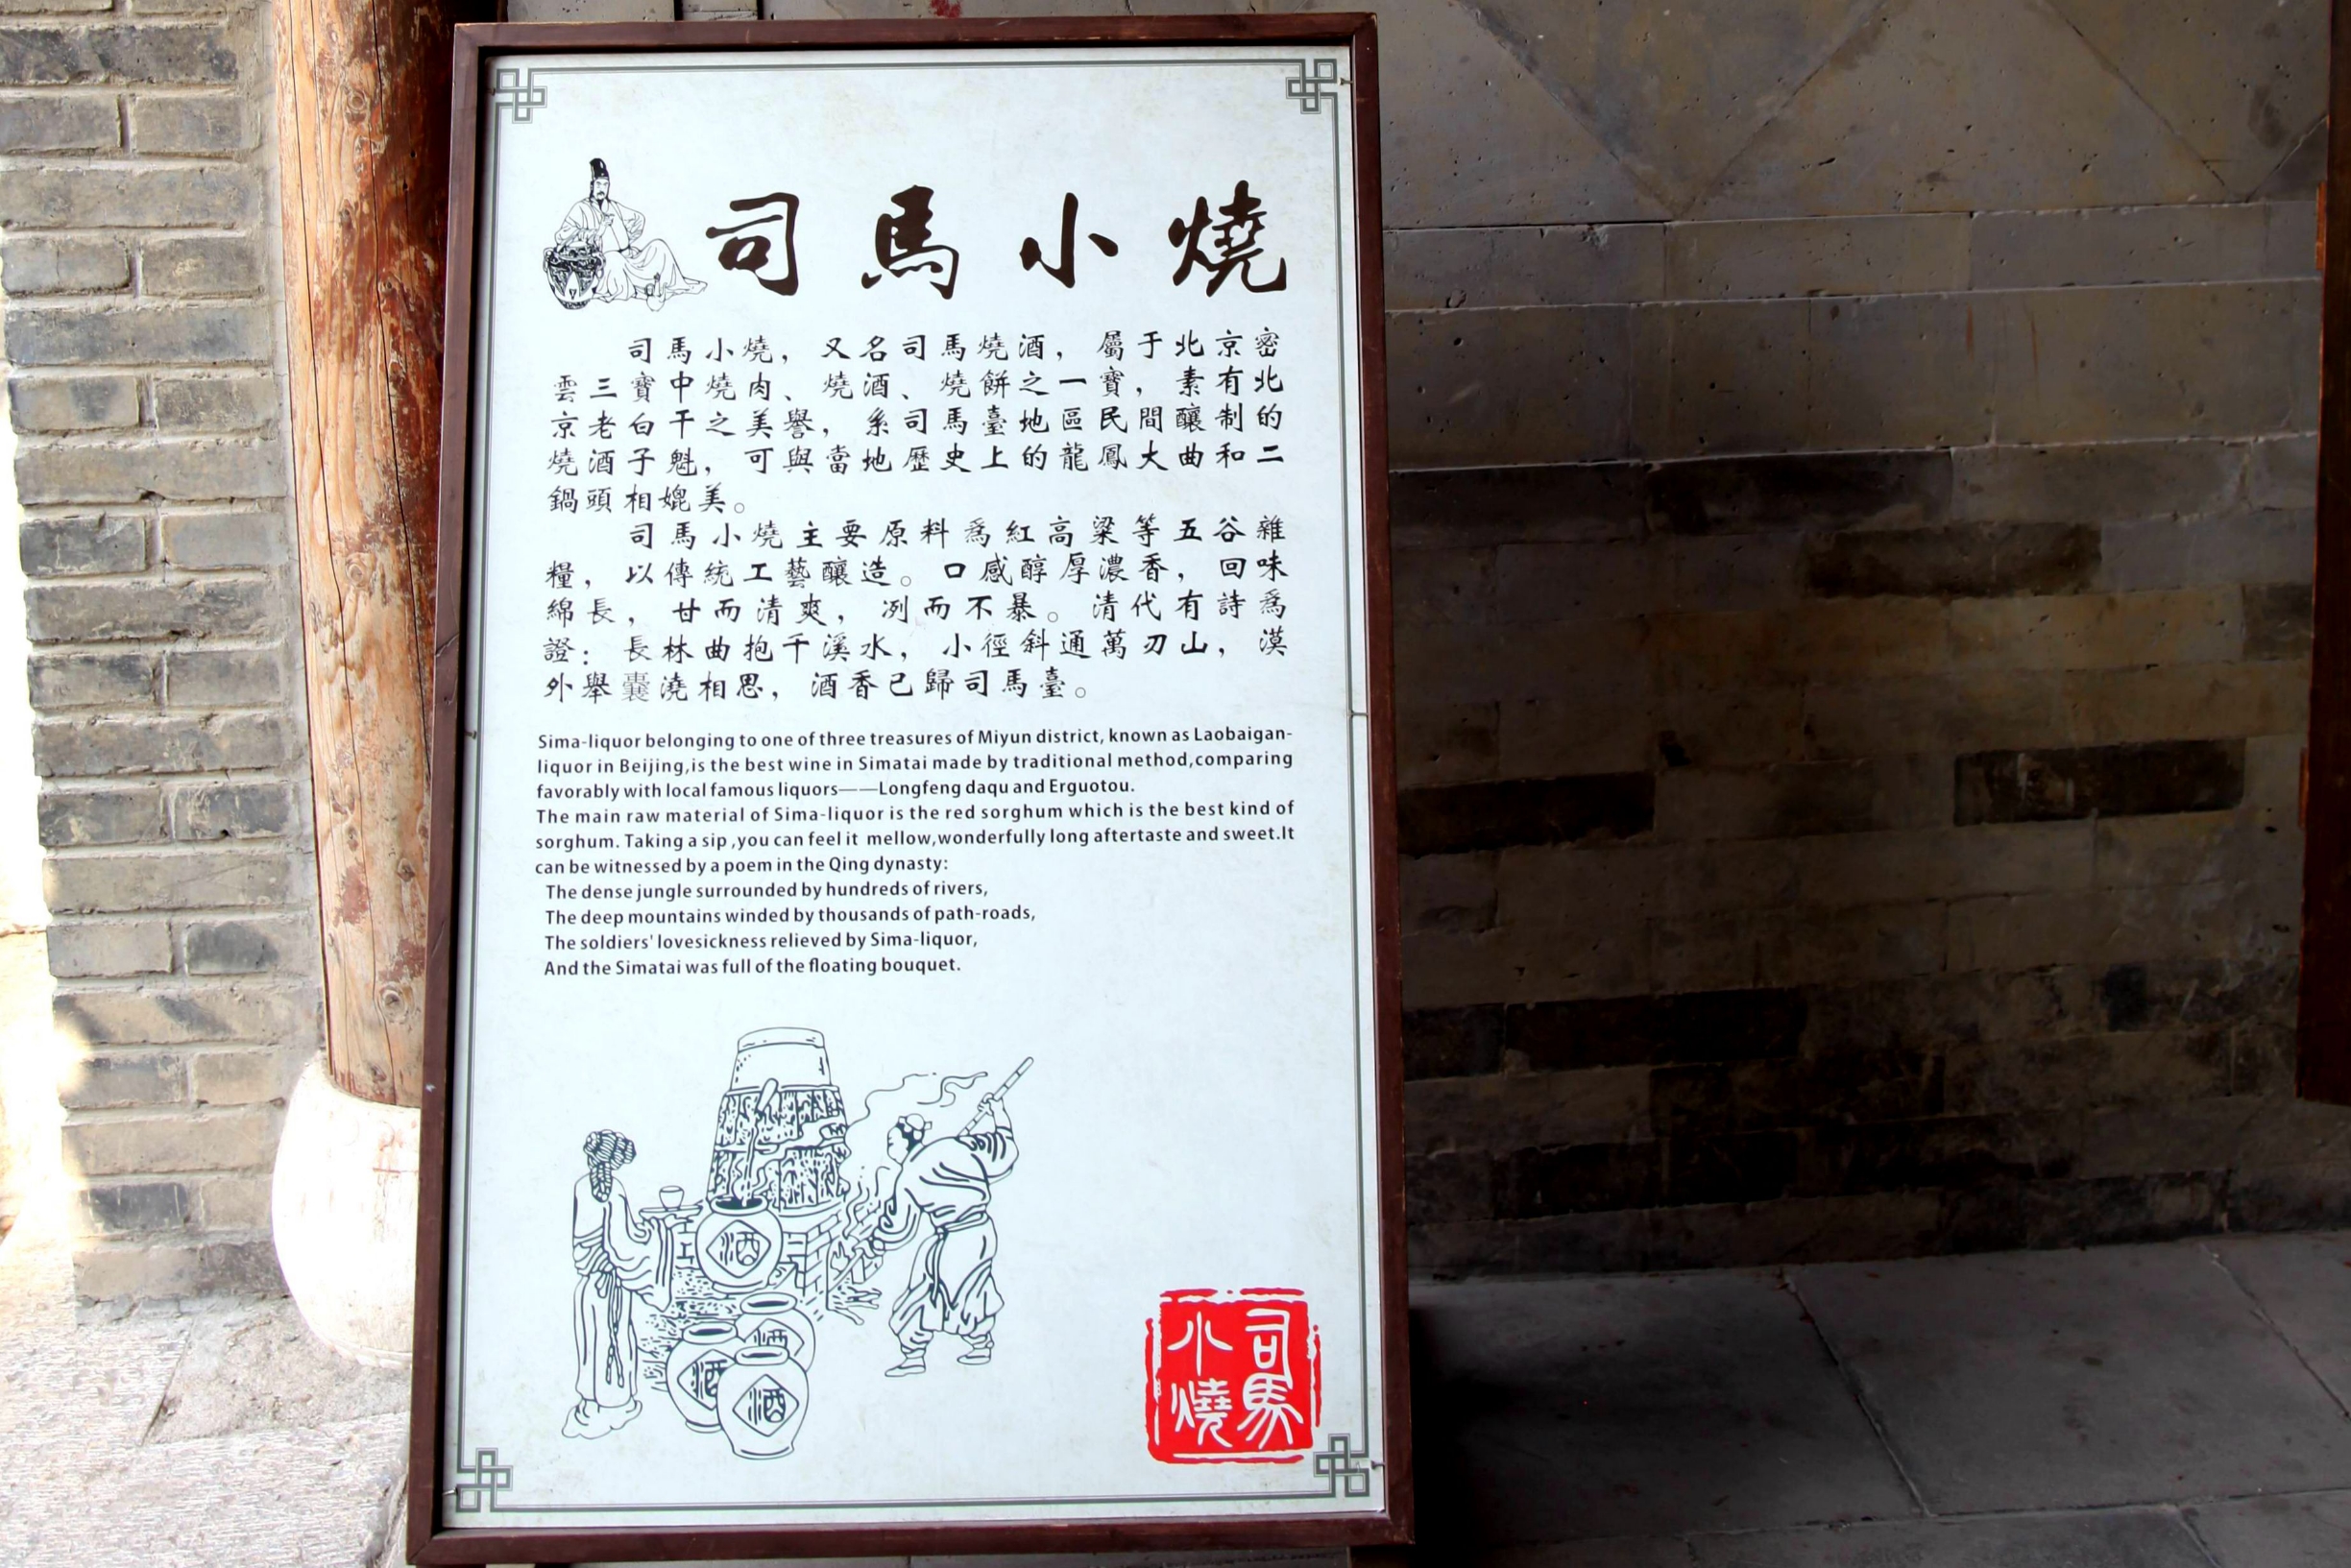 司馬小燒
司馬小燒，又名司馬燒酒，屬于北京密
雲三寶中燒肉、燒酒、燒餅之一寶，素有北
京老白干之美譽，系司馬臺地區民間釀制的
燒酒子魁，可與當地歷史上的龍鳳大曲和二
鍋頭相媲美。
司馬小燒主要原料為紅高粱等五谷雜
糧，以傳統工藝釀造。口感醇厚濃香，回味
綿長，甘而清爽，冽而不暴。清代有詩為
證：長林曲抱千溪水，小徑斜通萬刃山，漠
外舉囊澆相思，酒香已歸司馬臺。
Sima-liquor belonging to one of three treasures of Miyun district, known as Laobaigan-
liquor in Beijing,is the best wine in Simatai made by traditional method,comparing
favorably with local famous liquors——Longfeng daqu and Erguotou.
The main raw material of Sima-liquor is the red sorghum which is the best kind of
sorghum. Taking a sip ,you can feel it mellow,wonderfully long aftertaste and sweet.It
can be witnessed by a poem in the Qing dynasty:
The dense jungle surrounded by hundreds of rivers,
The deep mountains winded by thousands of path-roads,
The soldiers' lovesickness relieved by Sima-liquor,
And the Simatai was full of the floating bouquet.
酒
酒
酒
酒
司馬
小燒